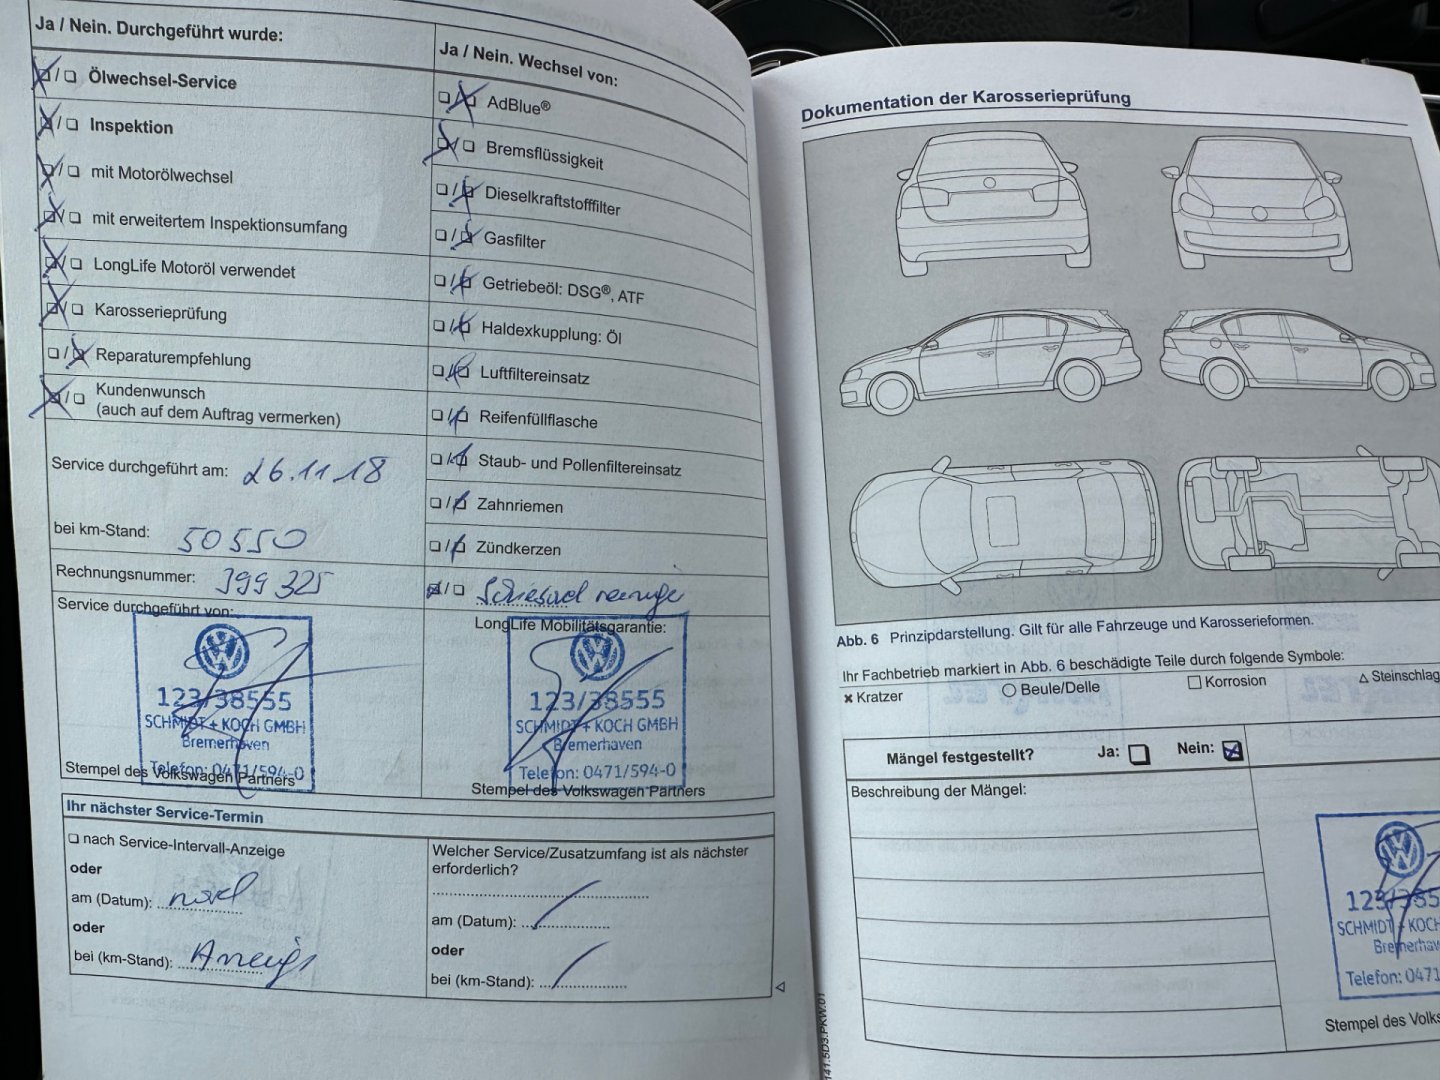 Ja / Nein. Durchgeführt wurde:
Ölwechsel-Service
Inspektion
mit Motorölwechsel
mit erweitertem Inspektionsumfang
LongLife Motoröl verwendet
Karosserieprüfung
Reparaturempfehlung
Kundenwunsch
(auch auf dem Auftrag vermerken)
Service durchgeführt am: 26.11.18
bei km-Stand: 50550
Rechnungsnummer: 399325
Service durchgeführt von:
123/38555
SCHMIDT + KOCH GMBH
Bremerhaven
Telefon: 0471/594-0
Stempel des Volkswagen Partners
Ja / Nein. Wechsel von:
AdBlue®
Bremsflüssigkeit
Dieselkraftstofffilter
Gasfilter
Getriebeöl: DSG®, ATF
Haldexkupplung: Öl
Luftfiltereinsatz
Reifenfüllflasche
Staub- und Pollenfiltereinsatz
Zahnriemen
Zündkerzen
LongLife Mobilitätsgarantie:
123/38555
SCHMIDT + KOCH GMBH
Bremerhaven
Telefon: 0471/594-0
Stempel des Volkswagen Partners
Ihr nächster Service-Termin
nach Service-Intervall-Anzeige
oder
am (Datum):
oder
bei (km-Stand):
Welcher Service/Zusatzumfang ist als nächster
erforderlich?
am (Datum):
oder
bei (km-Stand):
Dokumentation der Karosserieprüfung
Abb. 6 Prinzipdarstellung. Gilt für alle Fahrzeuge und Karosserieformen.
Ihr Fachbetrieb markiert in Abb. 6 beschädigte Teile durch folgende Symbole:
Kratzer
Beule/Delle
Korrosion
Steinschlag
Mängel festgestellt? Ja: Nein:
Beschreibung der Mängel:
SCHMIDT + KOCH
Bremerhav
Telefon: 0471
Stempel des Volks
141.5D3.PKW.01